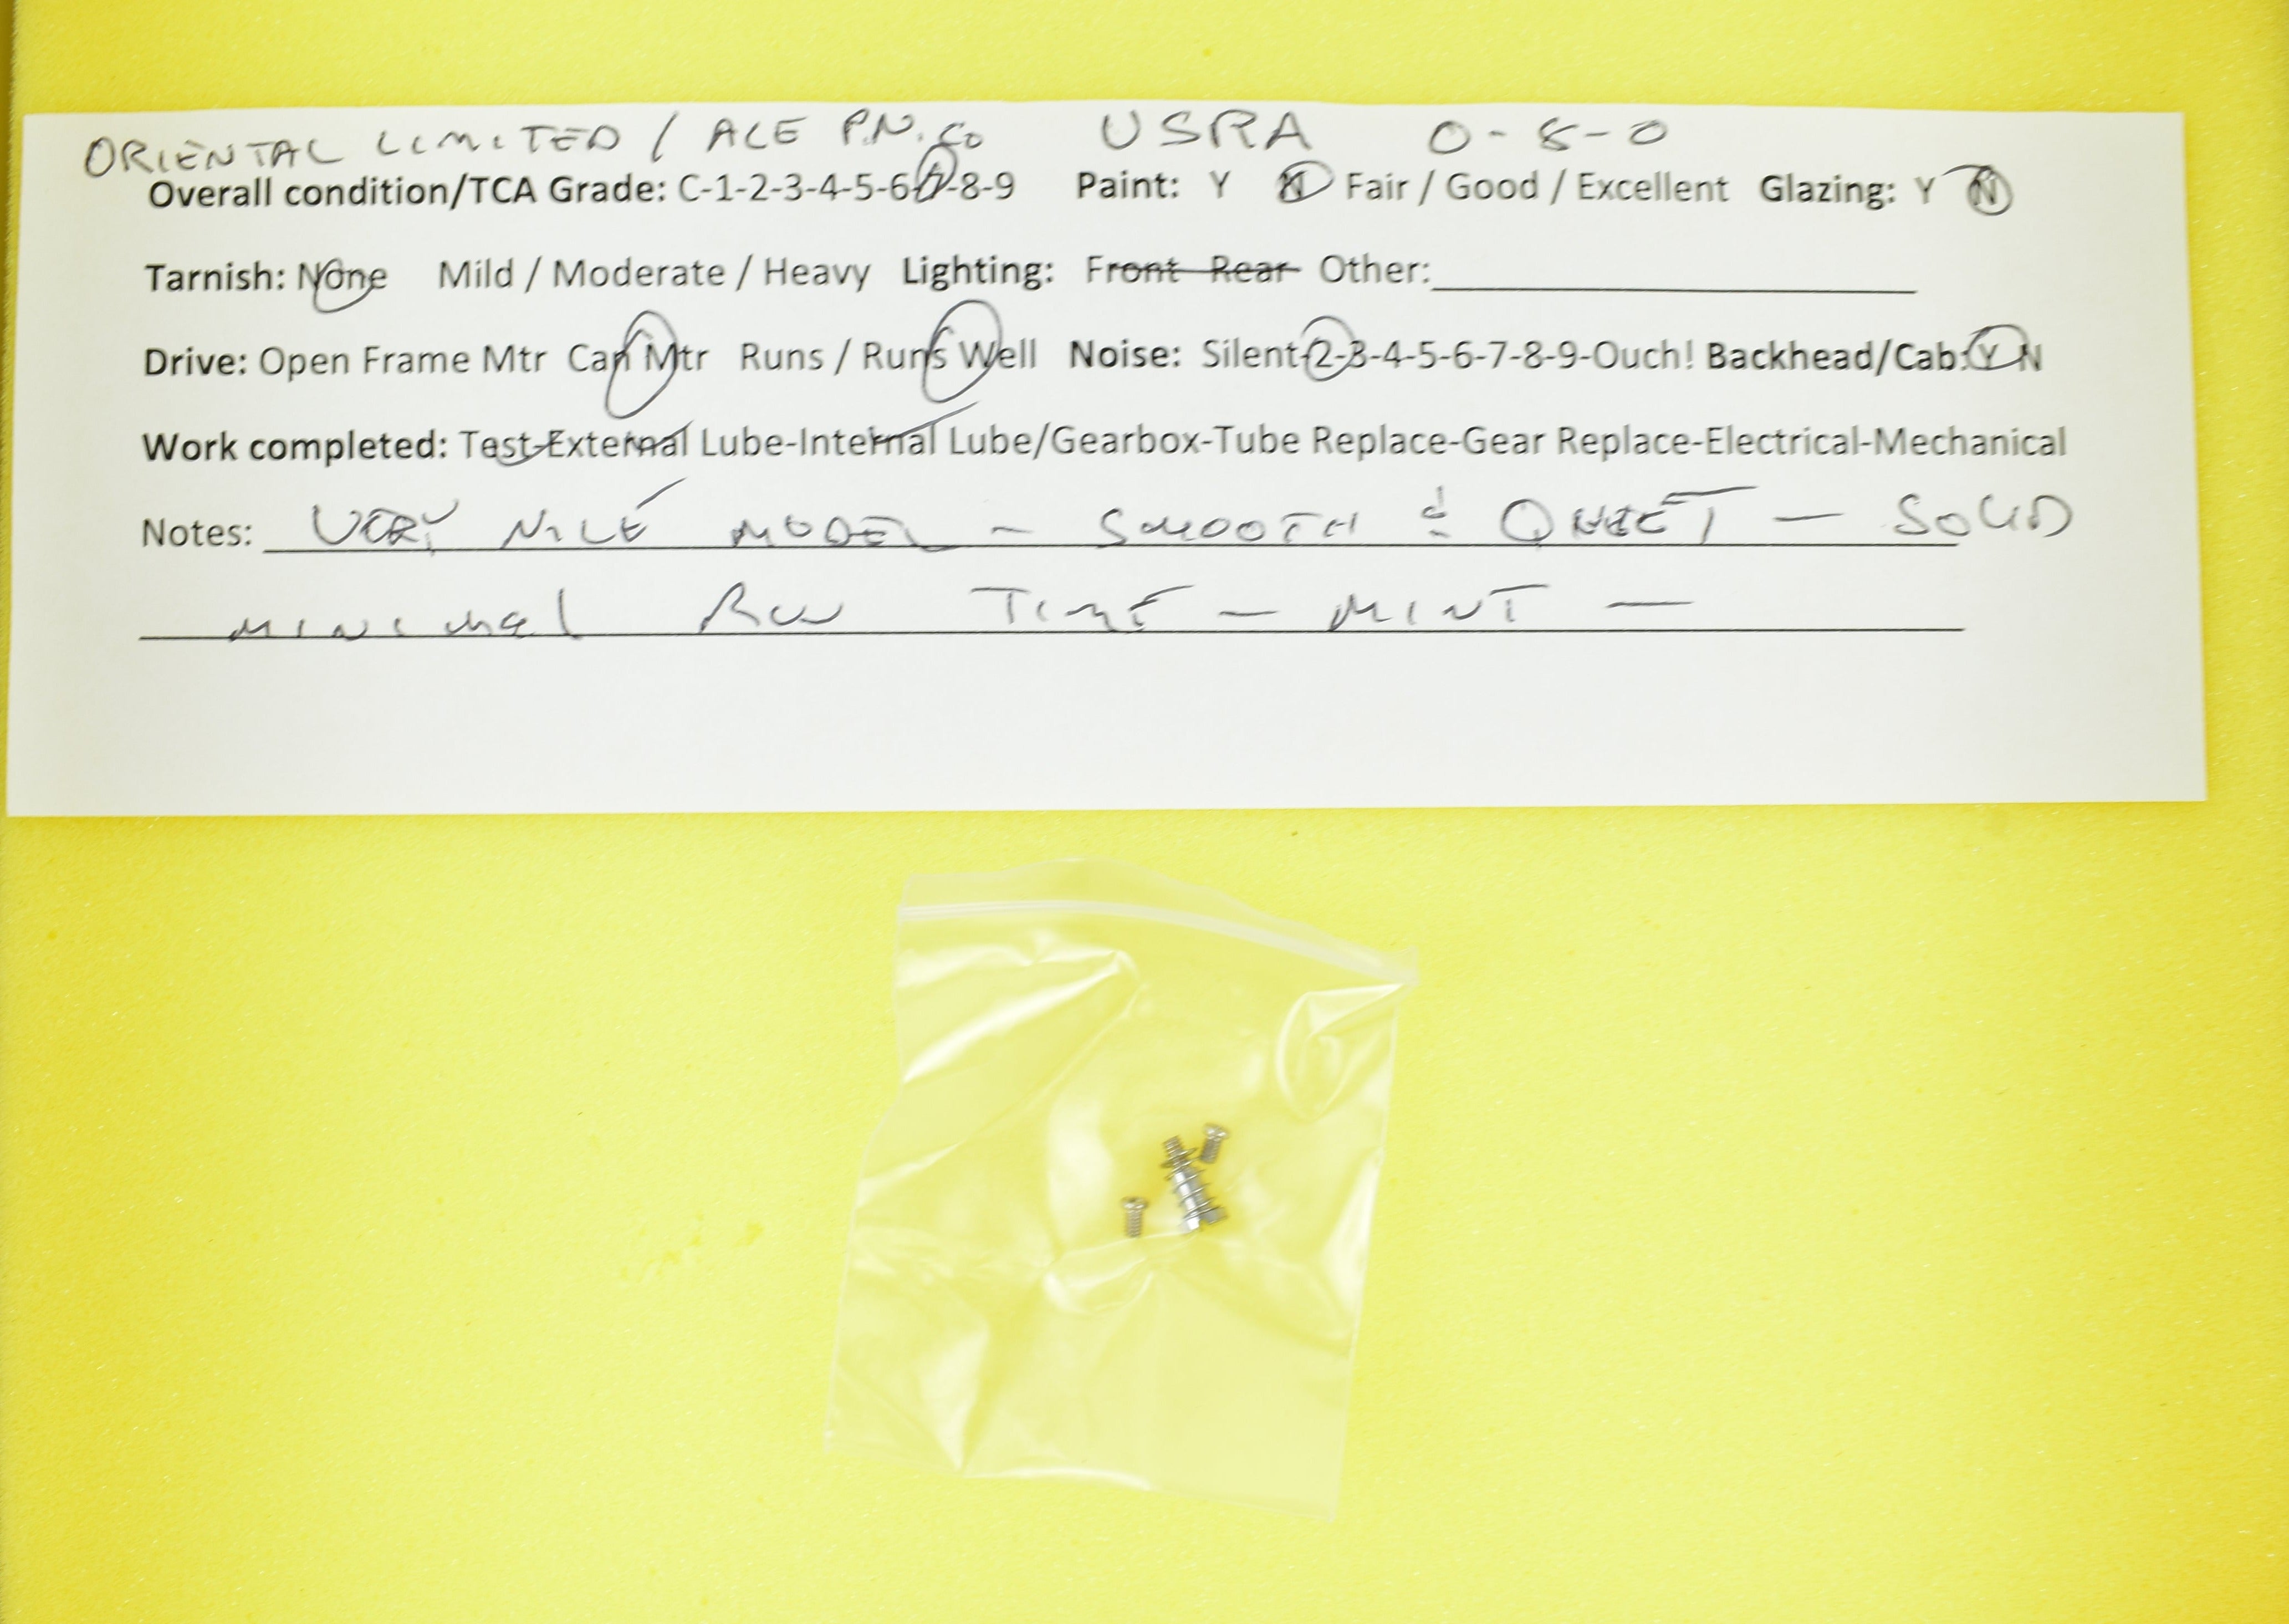 ORIENTAL LIMITED / ACE P.N. Co USRA 0-8-0
Overall condition/TCA Grade: C-1-2-3-4-5-6-7-8-9 Paint: Y N Fair / Good / Excellent Glazing: Y N
Tarnish: None Mild / Moderate / Heavy Lighting: Front Rear Other:
Drive: Open Frame Mtr Can Mtr Runs / Runs Well Noise: Silent-2-3-4-5-6-7-8-9-Ouch! Backhead/Cab: Y N
Work completed: Test-External Lube-Internal Lube/Gearbox-Tube Replace-Gear Replace-Electrical-Mechanical
Notes: VERY NICE MODEL - SMOOTH & QUIET - SOLID
MINIMAL RUN TIME - MINT -